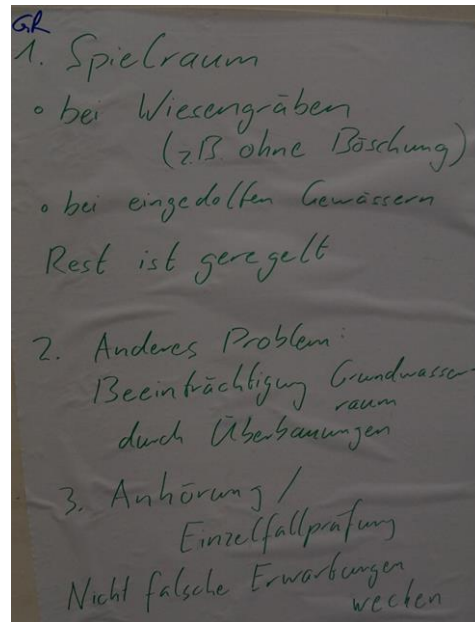 GR
1. Spielraum
• bei Wiesengräben
(z.B. ohne Böschung)
• bei eingedolten Gewässern
Rest ist geregelt
2. Anderes Problem:
Beeinträchtigung Grundwasser-
raum
durch Überbauungen
3. Anhörung /
Einzelfallprüfung
Nicht falsche Erwartungen
wecken